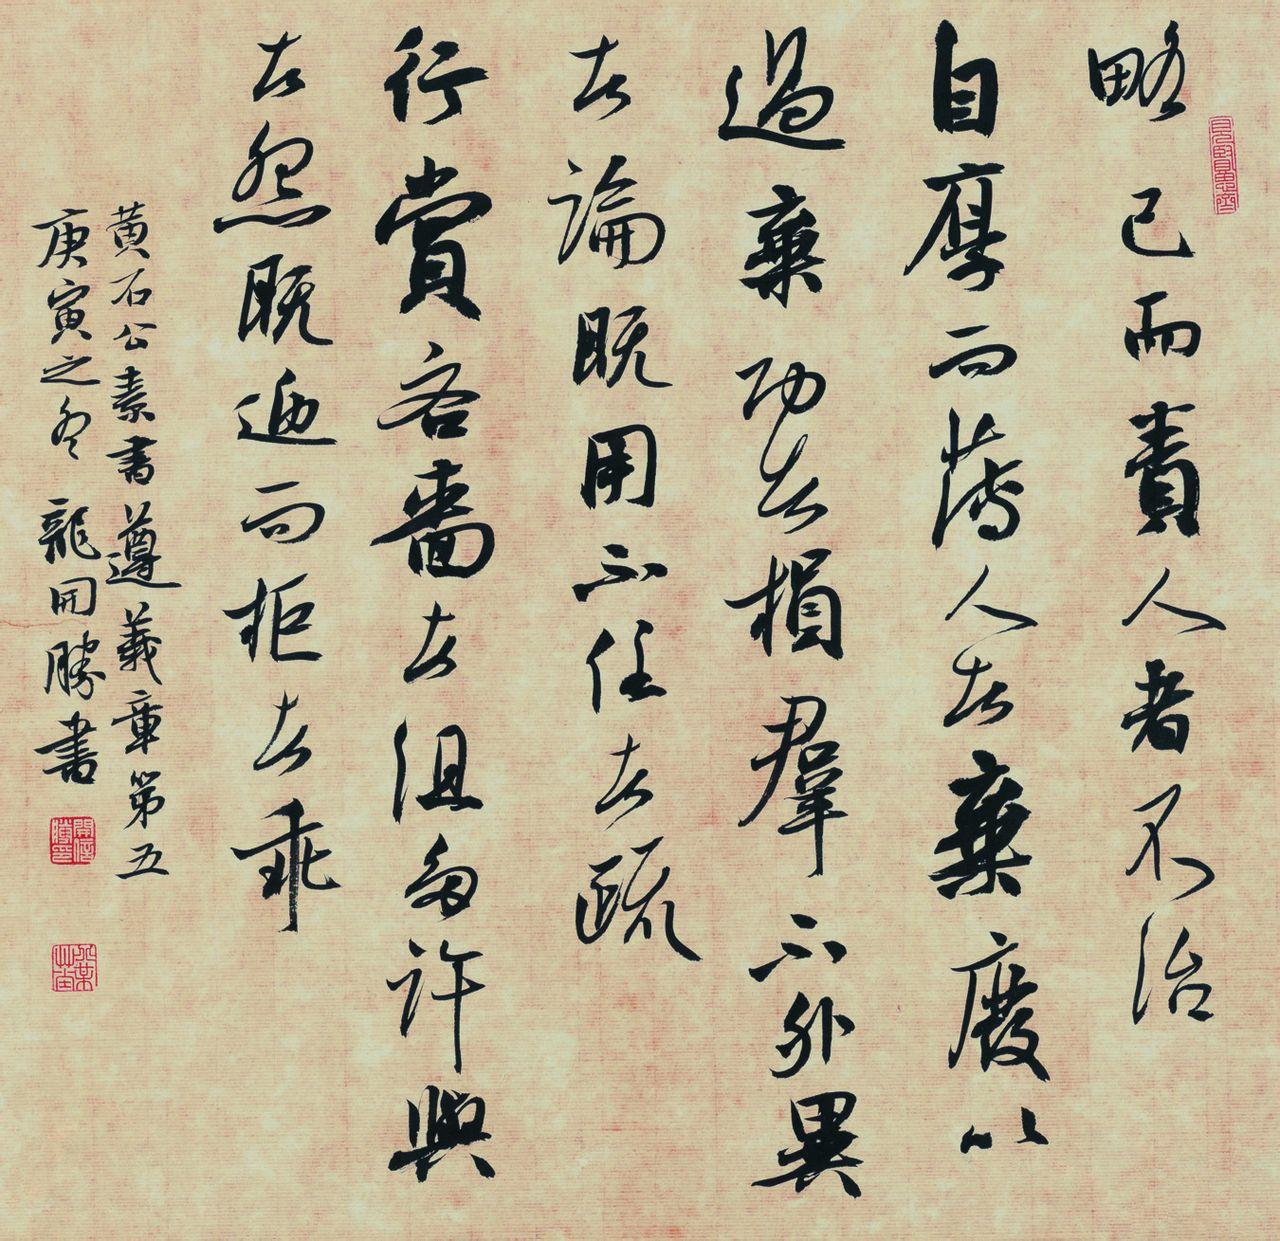 略己而責人者不治
自厚而薄人者棄廢以
過棄功者損羣下外異
者論既用不任者疏
行賞吝嗇者沮多許與
者怨既迎而拒者乖
黃石公素書遵義章第五
庚寅之冬龍開勝書
見賢思齊